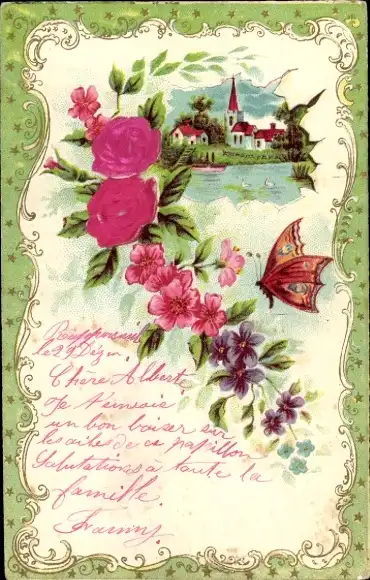 le 29 Déz
Chère Alberte
Je t'envoie
un bon baiser sur
les ailes de ce papillon
Salutations à toute la
famille.
Fanny